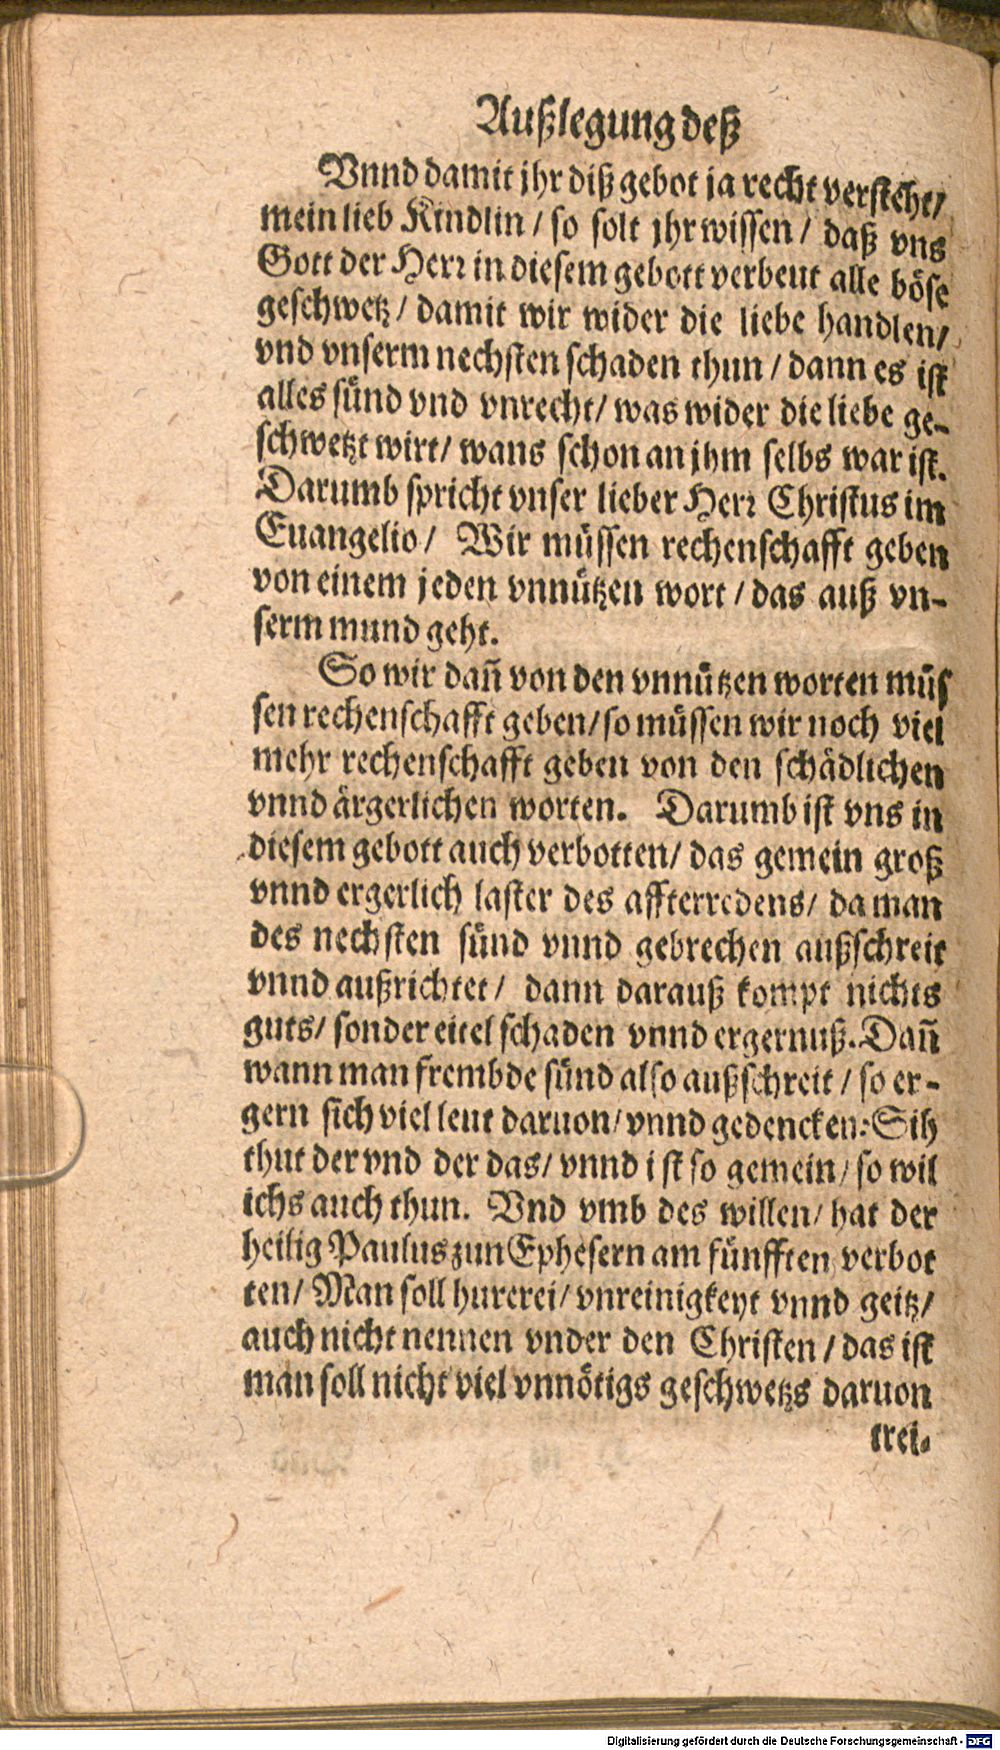 Außlegung deß
Vnnd damit jhr diß gebot ja recht versteht/
mein lieb Kindlin / so solt jhr wissen / daß vns
Gott der Herr in diesem gebott verbeut alle böse
geschwetz / damit wir wider die liebe handlen/
vnd vnserm nechsten schaden thun / dann es ist
alles sünd vnd vnrecht/ was wider die liebe ge-
schwetzt wirt/ wans schon an jhm selbs war ist.
Darumb spricht vnser lieber Herr Christus im
Euangelio / Wir müssen rechenschafft geben
von einem jeden vnnützen wort / das auß vn-
serm mund geht.
So wir dañ von den vnnützen worten müs
sen rechenschafft geben/so müssen wir noch viel
mehr rechenschafft geben von den schädlichen
vnnd ärgerlichen worten. Darumb ist vns in
diesem gebott auch verbotten/ das gemein groß
vnnd ergerlich laster des affterredens/ da man
des nechsten sünd vnnd gebrechen außschreit
vnnd außrichtet/ dann darauß kompt nichts
guts/ sonder eitel schaden vnnd ergernuß. Dañ
wann man frembde sünd also außschreit / so er-
gern sich viel leut daruon/ vnnd gedencken: Sih
thut der vnd der das/ vnnd ist so gemein/ so wil
ichs auch thun. Vnd vmb des willen/ hat der
heilig Paulus zun Ephesern am fünfften verbot
ten/ Man soll hurerei/ vnreinigkeyt vnnd geitz/
auch nicht nennen vnder den Christen / das ist
man soll nicht viel vnnötigs geschwetzs daruon
trei-
Digitalisierung gefördert durch die Deutsche Forschungsgemeinschaft - DFG